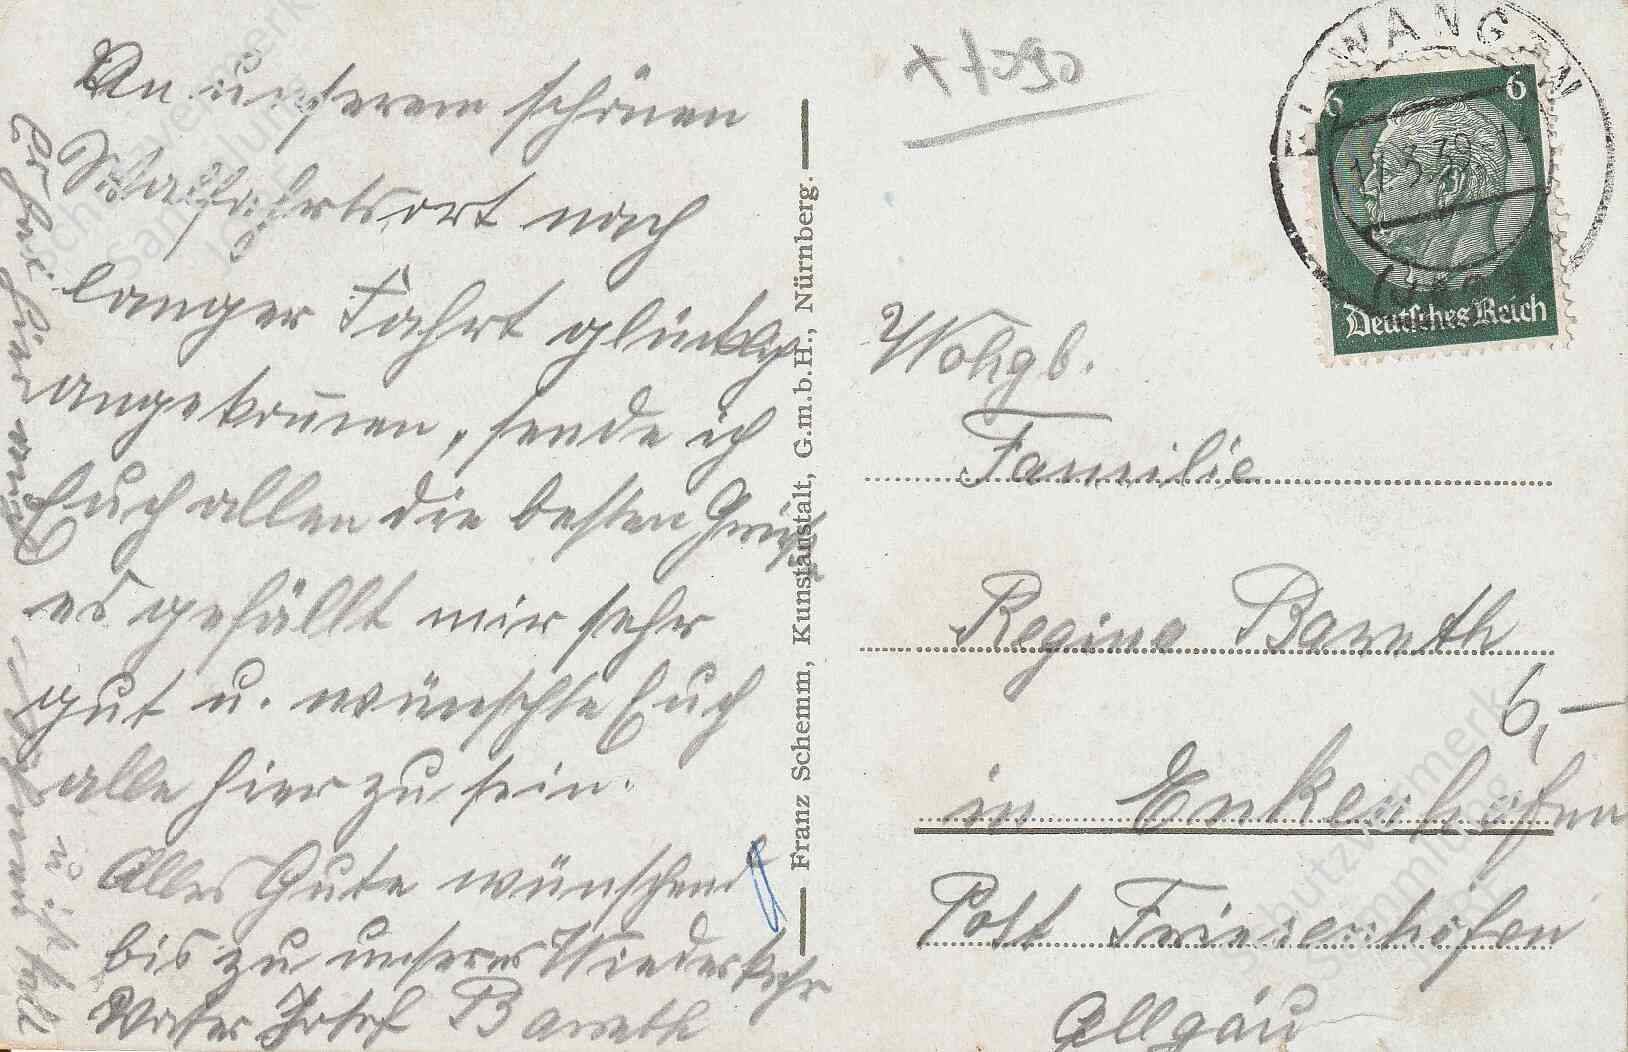 An unserem schönen
Wallfahrtsort nach
langer Fahrt glücklich
angekommen, sende ich
Euch allen die besten Grüße
es gefällt mir sehr
gut u. wünschte Euch
alle hier zu sein.
Alles Gute wünschend
bis zu unserer Wiederkehr
Vater Josef Bareth
Es hat hier
Schnee u. ist kalt
Franz Schemm, Kunstanstalt, G.m.b.H., Nürnberg.
ELLWANGEN
17.3.39
6 6
Deutsches Reich
Wohgb.
Familie
Regina Bareth
6,-
in Enkenhofen
Post Friesenhofen
Allgäu
Schutzvermerk
Sammlung
Schutzvermerk
Sammlung